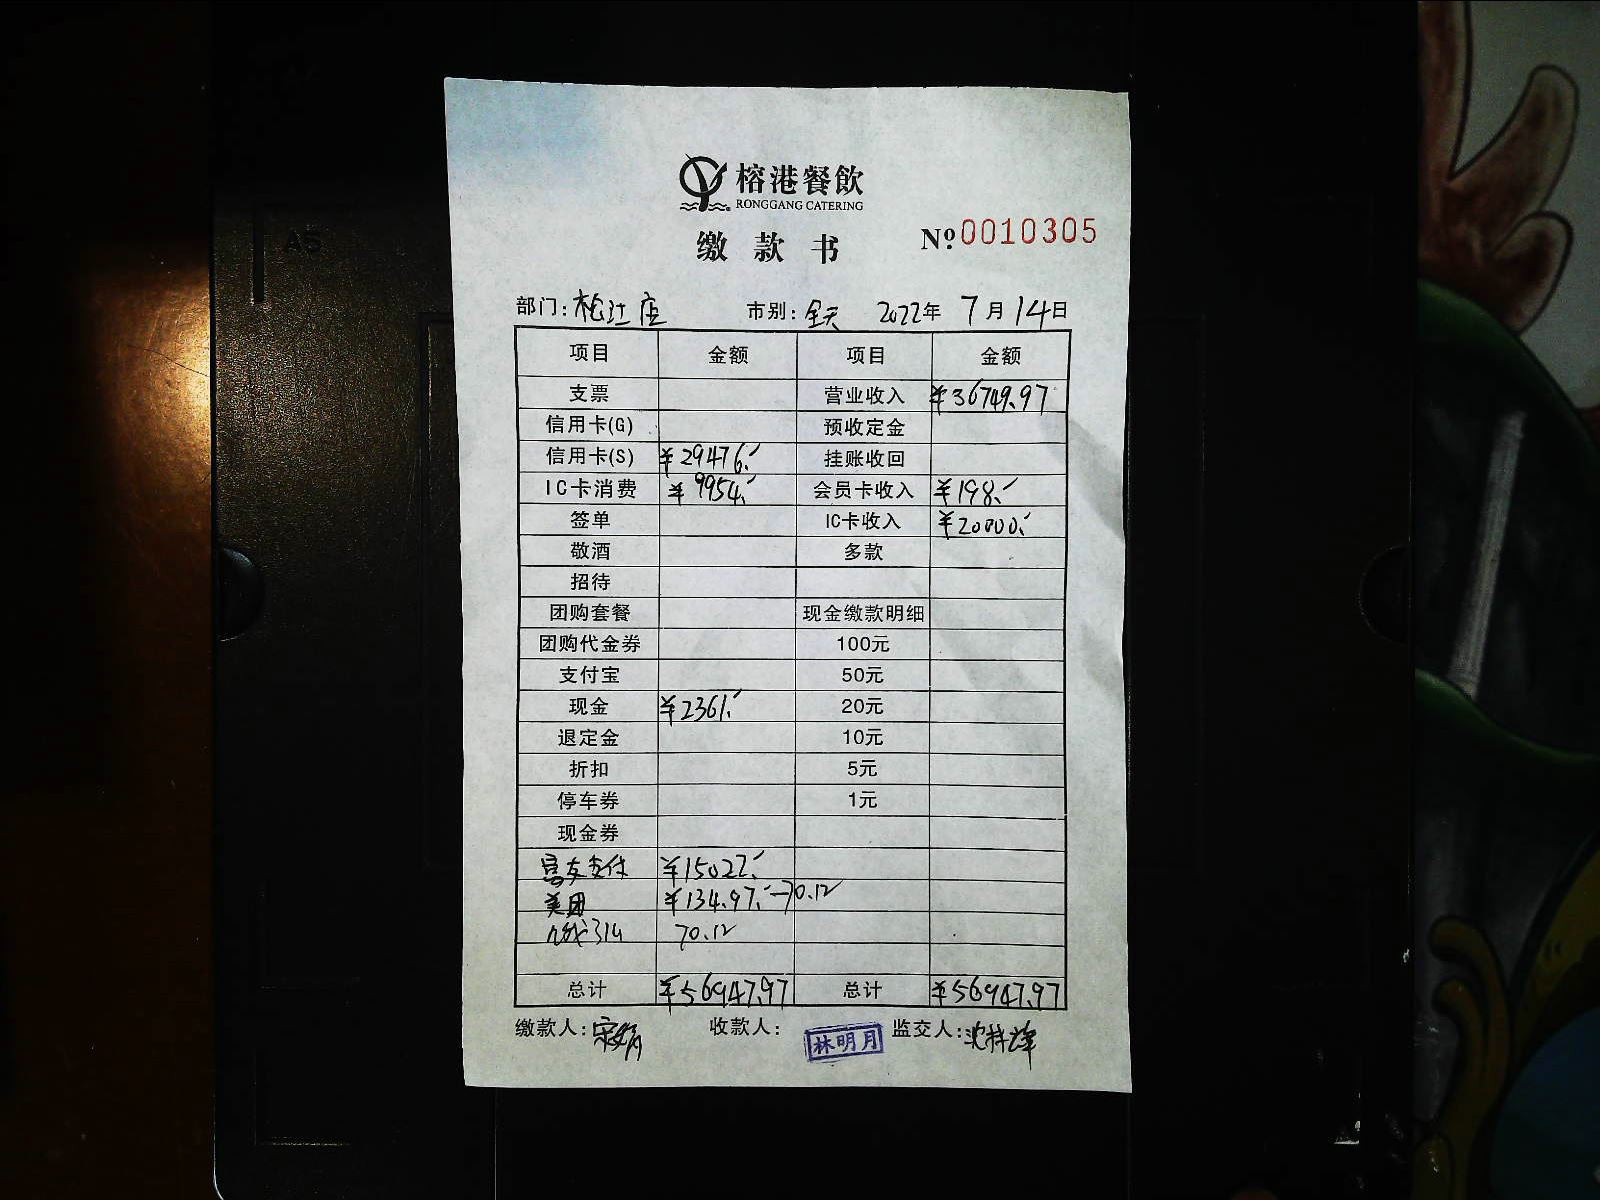 A5
榕港餐飲
RONGGANG CATERING
缴款书 №0010305
部门:松江店 市别:全天 2022年7月14日
项目 金额 项目 金额
支票 营业收入 ¥36749.97
信用卡(G) 预收定金
信用卡(S) ¥29476.- 挂账收回
IC卡消费 ¥9954.- 会员卡收入 ¥198.-
签单 IC卡收入 ¥20000.-
敬酒 多款
招待
团购套餐 现金缴款明细
团购代金券 100元
支付宝 50元
现金 ¥2361.- 20元
退定金 10元
折扣 5元
停车券 1元
现金券
支付 ¥15022.-
美团 ¥134.97.-70.12
70.12
总计 ¥56947.97 总计 ¥56947.97
缴款人: 收款人: 林明月 监交人: